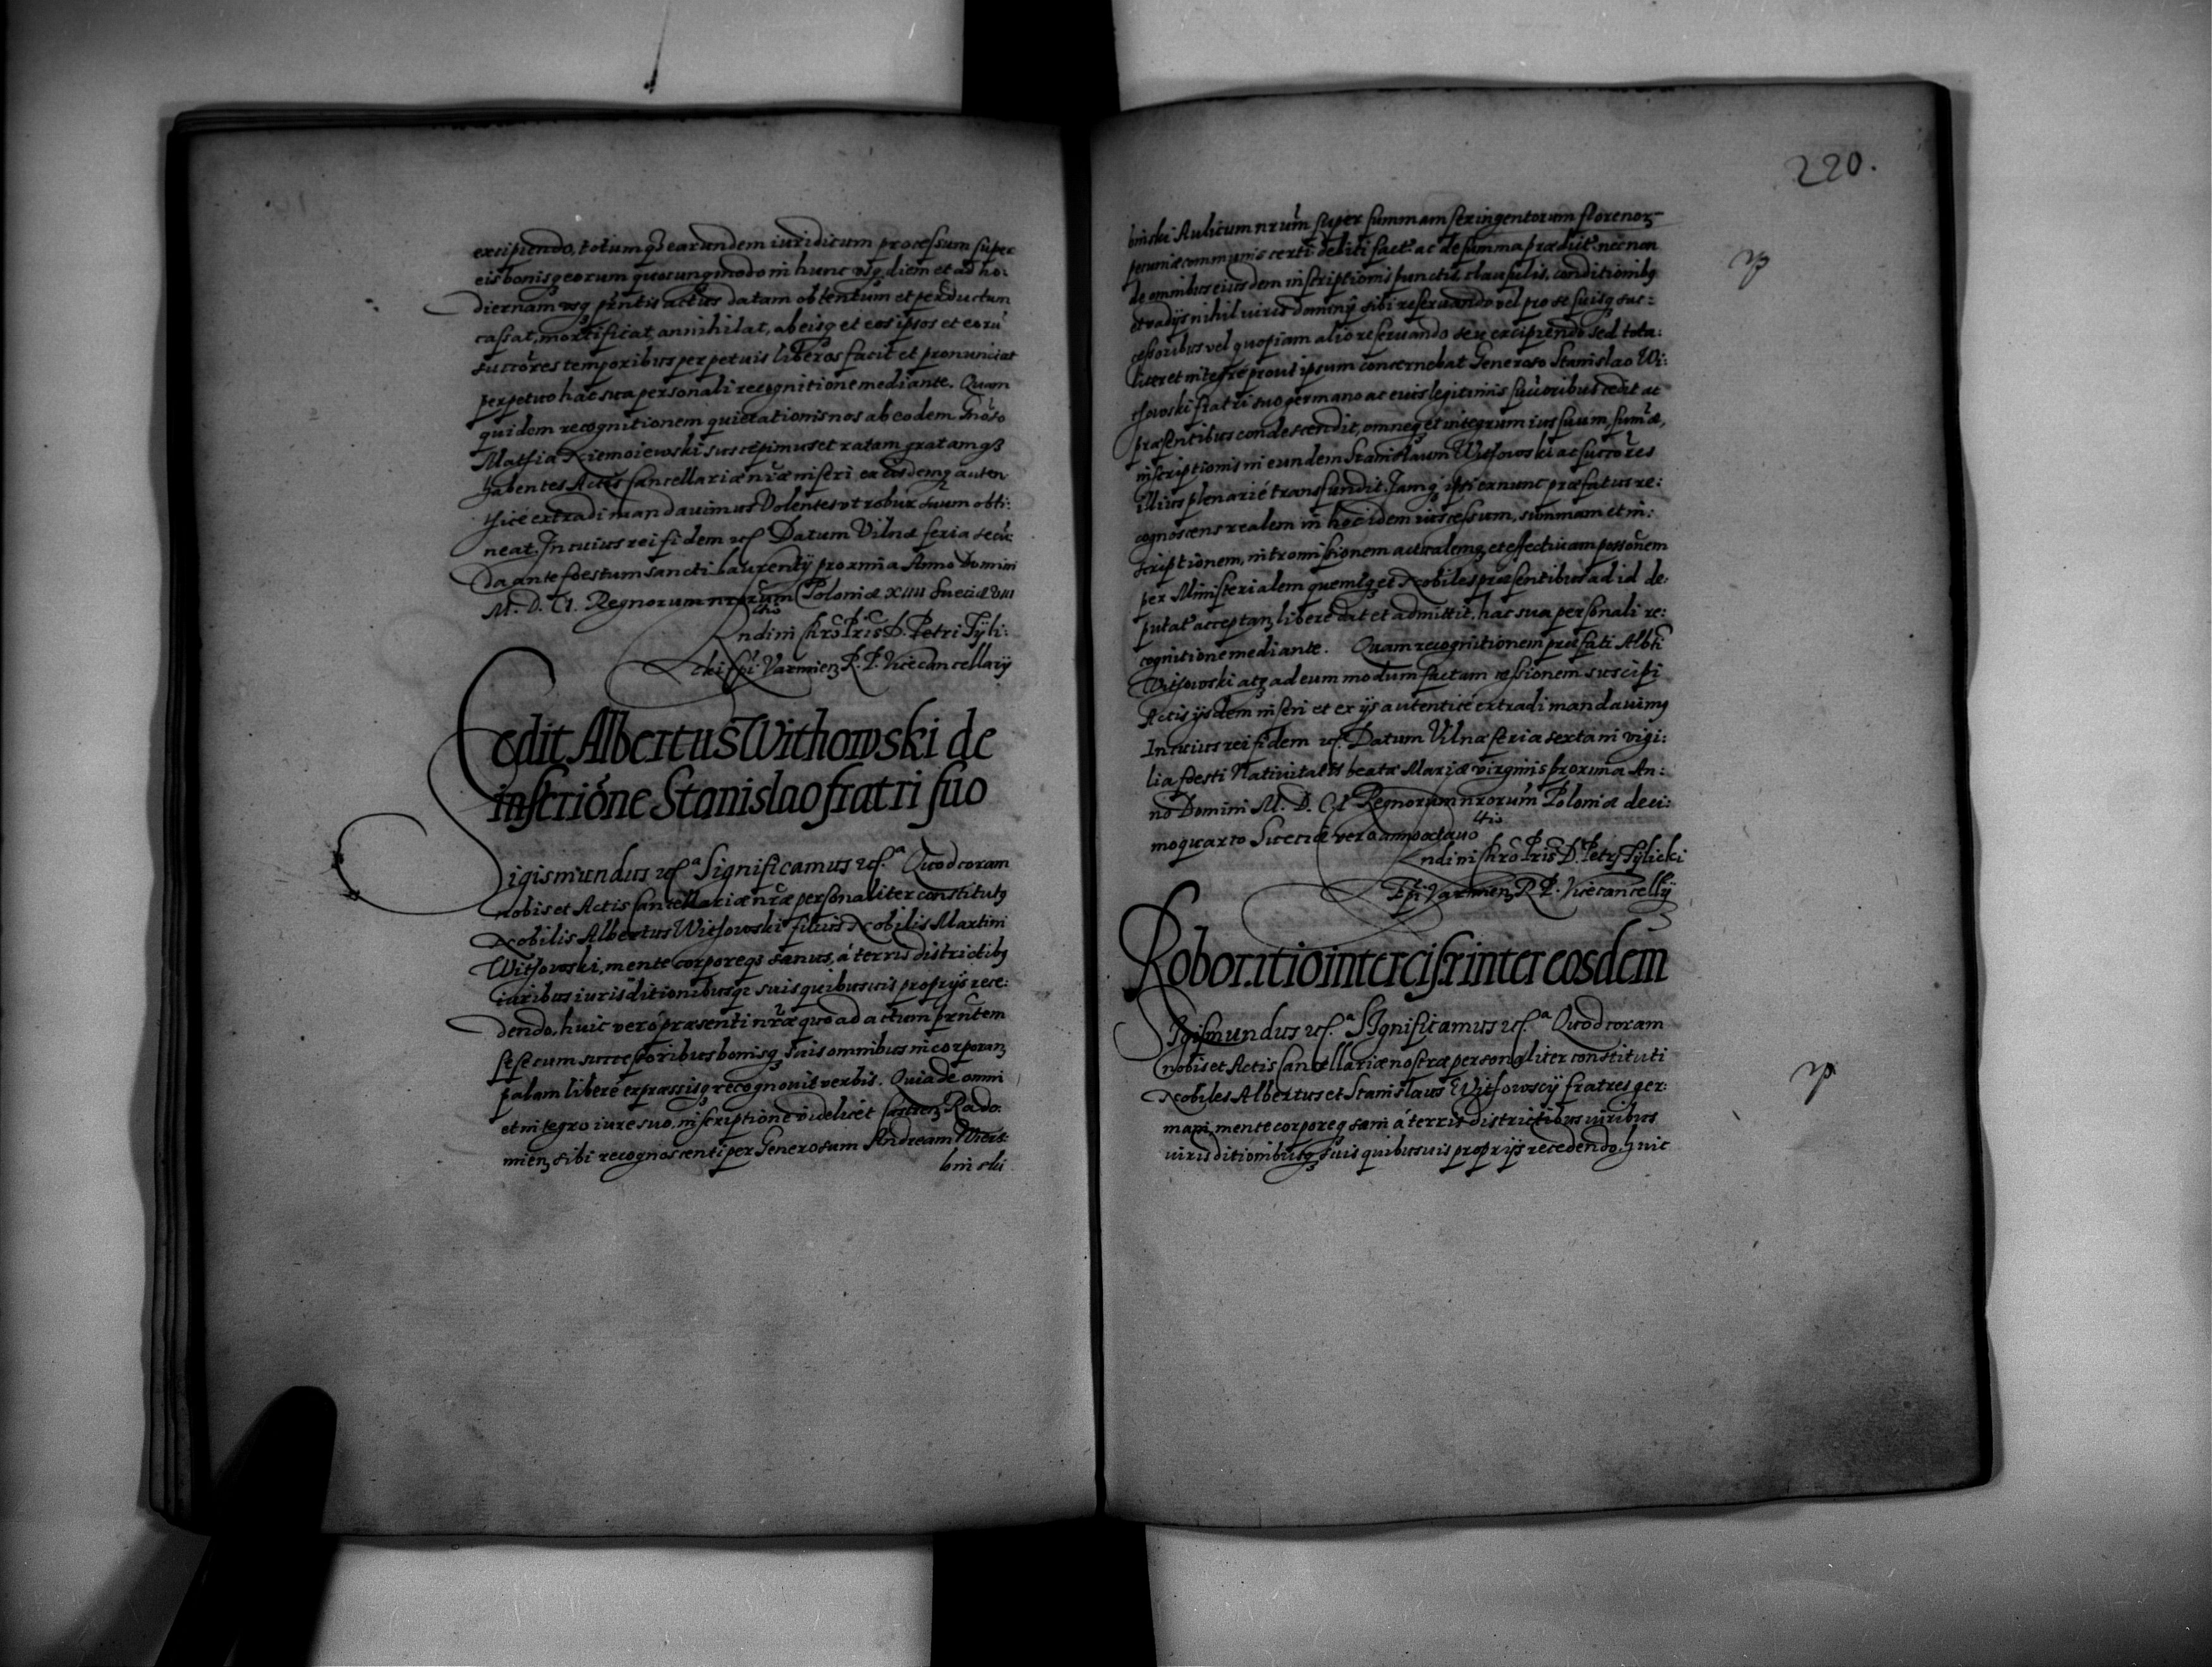 excipiendo, totumq3 earundem iuridicum processum super
eis bonisq3 eorum quocunq3 modo in hunc usq3 diem et ad ho:
diernam usq3 pñtis actus datam obtentum et perductum
cassat, mortificat, annihilat, ab eisq3 et eos ipsos et eorũ
succr̃es temporibus perpetuis liberos facit et pronunciat
perpetuo hac sua personali recognitione mediante. Quam
quidem recognitionem quietationis nos ab eodem Gnõso
Mathia Niemoiewski suscepimus et ratam gratamq3
habentes Actis Cancellariæ nr̃æ inseri ex eisdemq3 auten
thicè extradi mandavimus Volentes ut robur suum obti:
neat. In cuius rei fidem etc. Datum Vilnæ feria secũ:
da ante foestum sancti Laurentÿ proxima Anno Domini
M. D. CI. Regnorum nrõrum Poloniæ XIIII Sueciæ VIII
R̃ndini Chrõ Pris D. Petri Tÿli:
cki Epĩ. Varmien3 R. P. Vicecancellarÿ
Cedit Albertus Withowski de
inscrióne Stanislao fratri suo
Sigismundus etc.ª Significamus etc.ª Quod coram
nobis et Actis Cancellariæ nr̃æ personaliter constitutq
Nobilis Albertus Withowski filius Nobilis Martini
Withowski, mente corporeq3 sanus, á terris districtibq
iuribus iurisditionibusq3 suis quibusvis proprÿs rece:
dendo, huic veró præsenti nr̃æ quo ad actum prñtem
sese cum successoribus bonisq3 suis omnibus incorporan3
palam liberé expressisq3 recognovit verbis. Quia de omni
et integro iure suo, inscriptione videlicét castren3 Rado:
mien3 sibi recognoscenti per Generosum Andream Wierz:
binski
220.
binski Aulicum nrũm super summam sexingentorum florenor3
pecuniæ communis certi debiti fact. ac de summa prædict. nec non
de omnibus eiusdem inscriptionis punctis clausulis, conditionibq
et vadÿs nihil iuris dominÿ sibi reservando vel pro se suisq3 suc:
cessoribus vel quopiam alio reservando seu excipiendo sed tota:
liter et integré prout ipsum concernebat Generoso Stanislao Wi:
thowski fratri suo germano ac eius legitimis succoribus cedit ac
præsentibus condescendit, omneq3 et integrum ius suum, sum̃æ,
inscriptionis in eundem Stanislaum Withowski ac succr̃es
illius plenarié transfundit. Iamq3 ipsi exnunc præfatus re:
cognoscens realem in hoc idem ius cessum, summam et in:
scriptionem, intromissionem actualemq3 et effectivam possoñem
per Ministerialem quemlq3 et Nobiles præsentibus ad id de:
putat. acceptan3 liberé dat et admittit, hac sua personali re:
cognitione mediante. Quam recognitionem præfati Albti
Withowski atq3 ad eum modum factam cessionem suscipi
Actis ÿsdem inseri et ex ÿs autenticé extradi mandavimq
In cuius rei fidem etc. Datum Vilnæ feria sexta in vigi:
lia foesti Nativitatis beatæ Mariæ virginis proxima An:
no Domini M. D. CI. Regnorum nrorum Poloniæ deci:
moquarto Sueciæ vero anno octavo
R̃ndini Chrõ Pris D. Petrj Tÿlicki
Epĩ. Varmien3 R. P. Vicecancellÿ
Roboratio intercisæ inter eosdem
Sigismundus etc.ª Significamus etc.ª Quod coram
nobis et Actis Cancellariæ nostræ personaliter constituti
Nobiles Albertus et Stanislaus Withowscÿ fratres ger:
mani, mente corporeq3 sani á terris districtibus iuribus
iurisditionibusq3 suis quibusvis proprÿs recedendo, huic